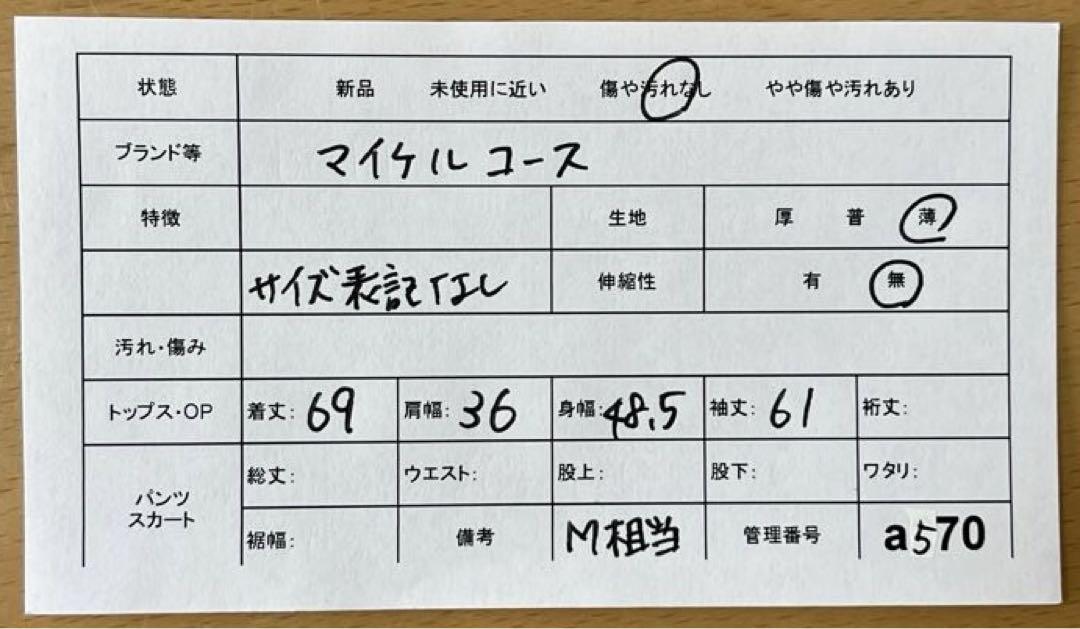 状態 新品 未使用に近い 傷や汚れなし やや傷や汚れあり
ブランド等 マイケルコース
特徴 生地 厚 普 薄
サイズ表記なし 伸縮性 有 無
汚れ・傷み
トップス・OP 着丈: 69 肩幅: 36 身幅: 48.5 袖丈: 61 裄丈:
パンツ スカート 総丈: ウエスト: 股上: 股下: ワタリ:
裾幅: 備考 M相当 管理番号 a570